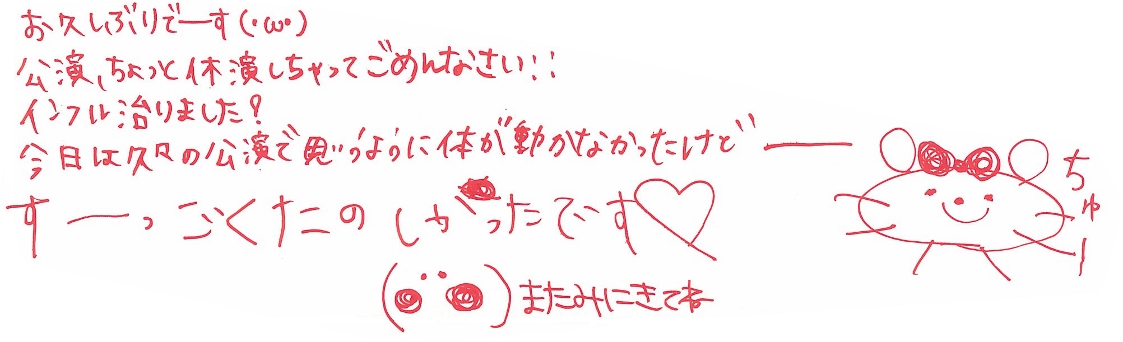 お久しぶりでーす(・ω・)
公演、ちょっと休演しちゃってごめんなさい!!
インフル治りました?
今日は久々の公演で思うように体が動かなかったけど——
すーっごくたのしかったです♡
またみにきてね
ちゅー